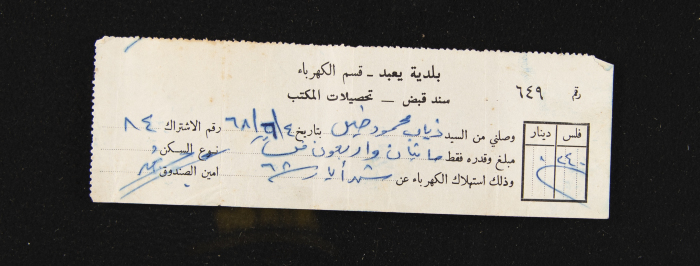 بلدية يعبد ــ قسم الكهرباء
رقم ٦٤٩
سند قبض ــ تحصيلات المكتب
فلس دينار
٢٤٠
وصلني من السيد ذياب محمود بتاريخ ٤/٦/٦٨ رقم الاشتراك ٨٤
مبلغ وقدره فقط مائتان واربعون فلس نوع السكن
وذلك استهلاك الكهرباء عن شهر أيار ٦٨ امين الصندوق